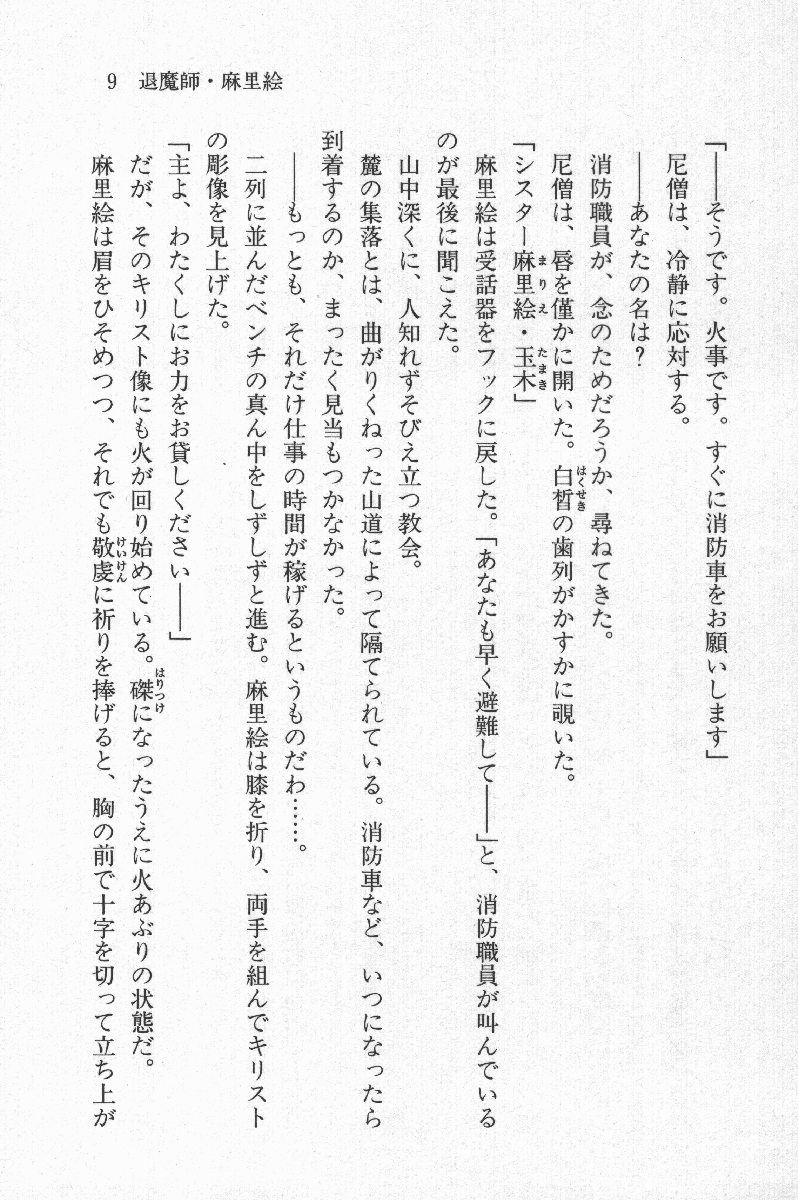 9 退魔師・麻里絵
「――そうです。火事です。すぐに消防車をお願いします」
尼僧は、冷静に応対する。
――あなたの名は?
消防職員が、念のためだろうか、尋ねてきた。
尼僧は、唇を僅かに開いた。白皙の歯列がかすかに覗いた。
はくせき
「シスター麻里絵・玉木」
まりえ たまき
麻里絵は受話器をフックに戻した。「あなたも早く避難して――」と、消防職員が叫んでいる
のが最後に聞こえた。
山中深くに、人知れずそびえ立つ教会。
麓の集落とは、曲がりくねった山道によって隔てられている。消防車など、いつになったら
到着するのか、まったく見当もつかなかった。
――もっとも、それだけ仕事の時間が稼げるというものだわ……。
二列に並んだベンチの真ん中をしずしずと進む。麻里絵は膝を折り、両手を組んでキリスト
の彫像を見上げた。
「主よ、わたくしにお力をお貸しください――」
だが、そのキリスト像にも火が回り始めている。磔になったうえに火あぶりの状態だ。
はりつけ
麻里絵は眉をひそめつつ、それでも敬虔に祈りを捧げると、胸の前で十字を切って立ち上が
けいけん